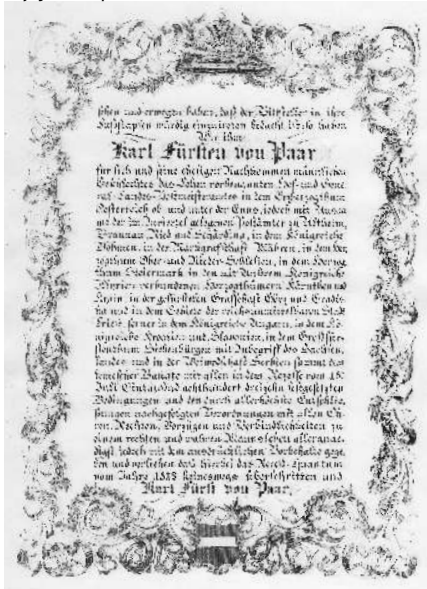 sehen und erwogen haben, daß der Bittsteller in ihre
Fußstapfen würdig einzutreten bedacht ist, so haben
Wir ihm
Karl Fürsten von Paar
für sich und seine ehelichen Nachkommen männlichen
Geschlechtes das Lehen vorbenannten Hof- und Gene
ral-Landes-Postmeisteramtes in dem Erzherzogthum
Oesterreich ob und unter der Enns, jedoch mit Ausna
me der im gelegenen Postämter zu Altheim,
Braunau, Ried und Schärding, in dem Königreiche
Böhmen, in der Markgrafschaft Mähren, in dem Her
zogthum Ober- und Nieder-Schlesien, in dem Herzog
thum Steiermark in den mit Unserem Königreiche
Illyrien verbundenen Herzogthümern Kärnthen und
Krain, in der gefürsteten Grafschaft Görz und Gradis
ka und in dem Gebiete der reichsunmittelbaren Stadt
Triest, ferner in dem Königreiche Ungarn, in dem Kö
nigreiche Kroazien und Slawonien, in dem Großfür
stenthum Siebenbürgen mit Inbegriff des Sachsen
landes und in der Woiwodschaft Serbien sammt dem
Temeser Banate mit allen in dem Rezesse vom
Juli Eintausend achthundert dreizehn festgesetzten
Bedingungen und den durch allerhöchste Entschlie
ßungen nachgefolgten Verordnungen mit allen Eh
ren, Rechten, Vorzügen und Verbindlichkeiten zu
einem rechten und wahren Mannslehen allergnä
digst jedoch mit dem ausdrücklichen Vorbehalte gege
ben und verliehen, daß hierbei das
vom Jahre keineswegs überschritten und
Karl Fürst von Paar,